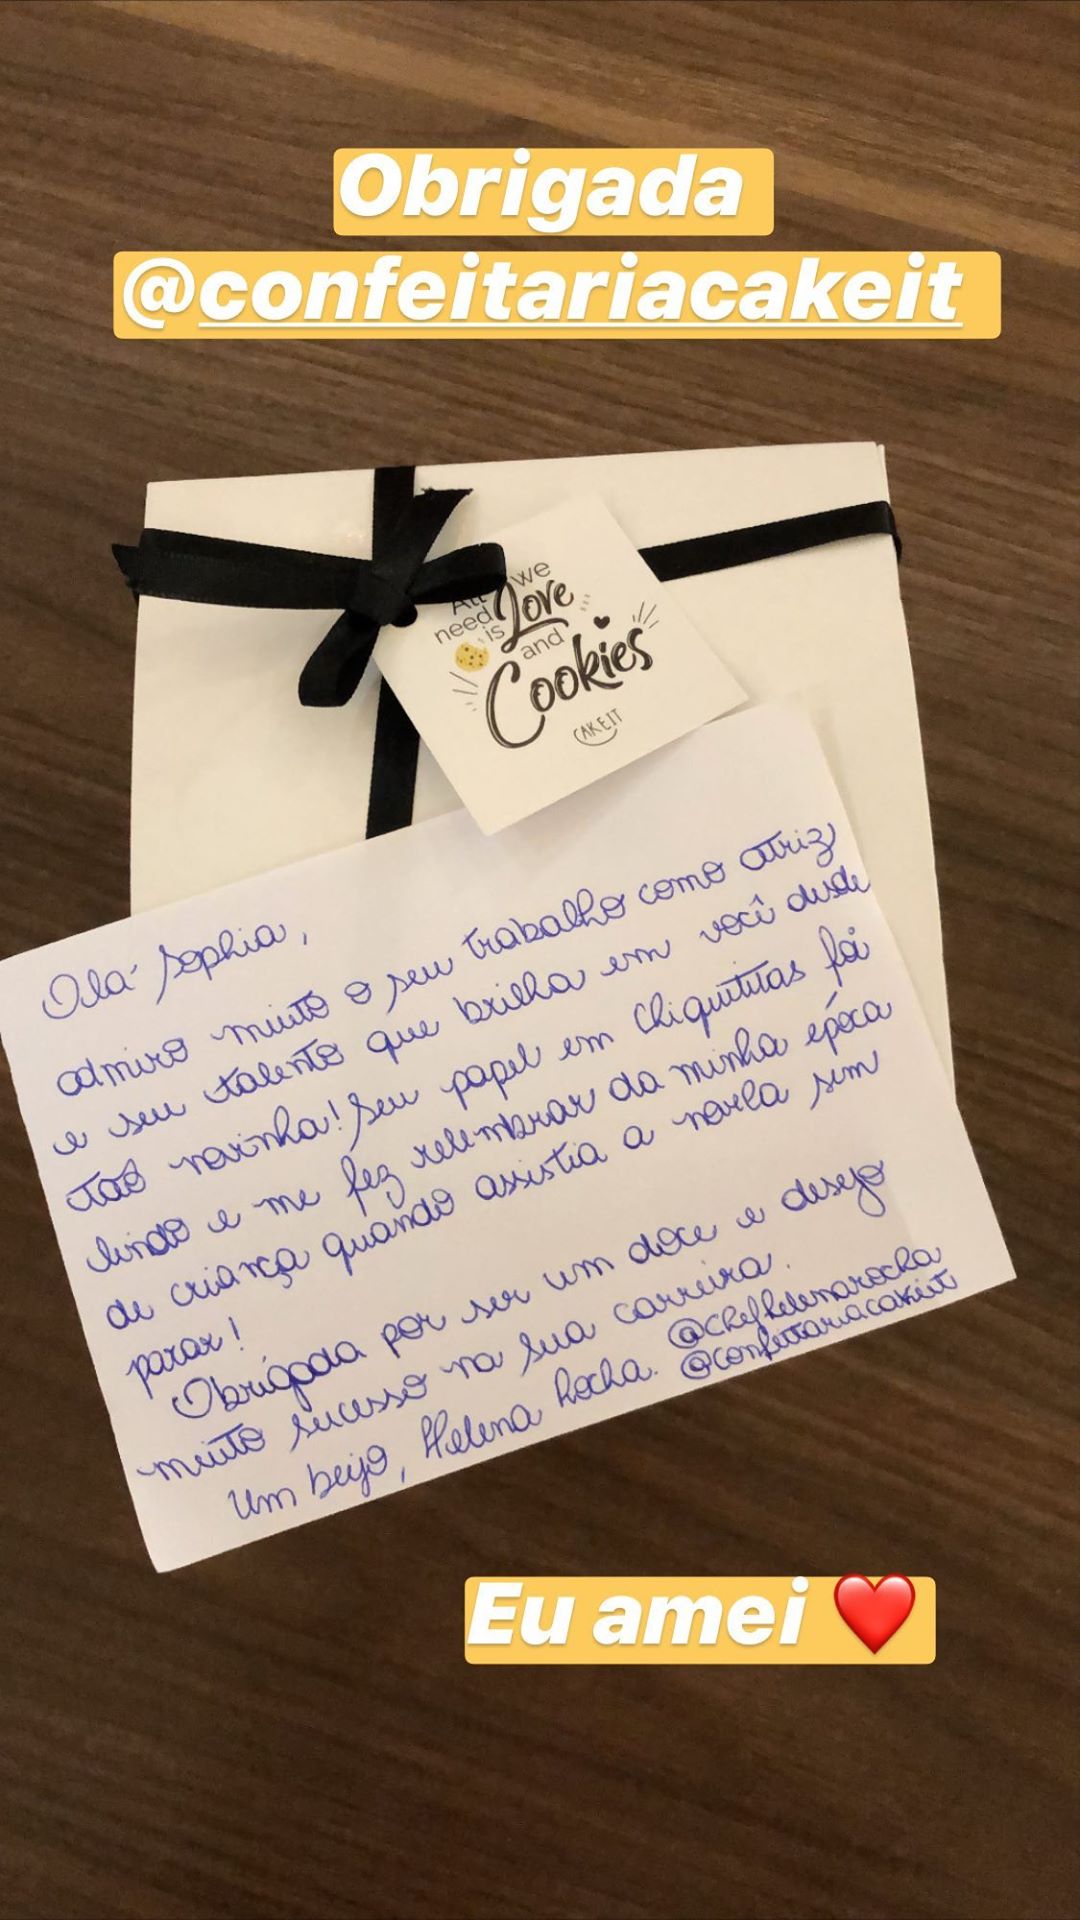 Obrigada
@confeitariacakeit
All we
need Love
is and
Cookies
CAKEIT
Olá Sophia,
admiro muito o seu trabalho como atriz
e seu talento que brilha em você desde
tão novinha! Seu papel em Chiquititas foi
lindo e me fez relembrar da minha época
de criança quando assistia a novela sem
parar!
Obrigada por ser um doce e desejo
muito sucesso na sua carreira.
Um beijo, Helena Rocha. @chefhelenarocha
@confeitariacakeit
Eu amei ❤️